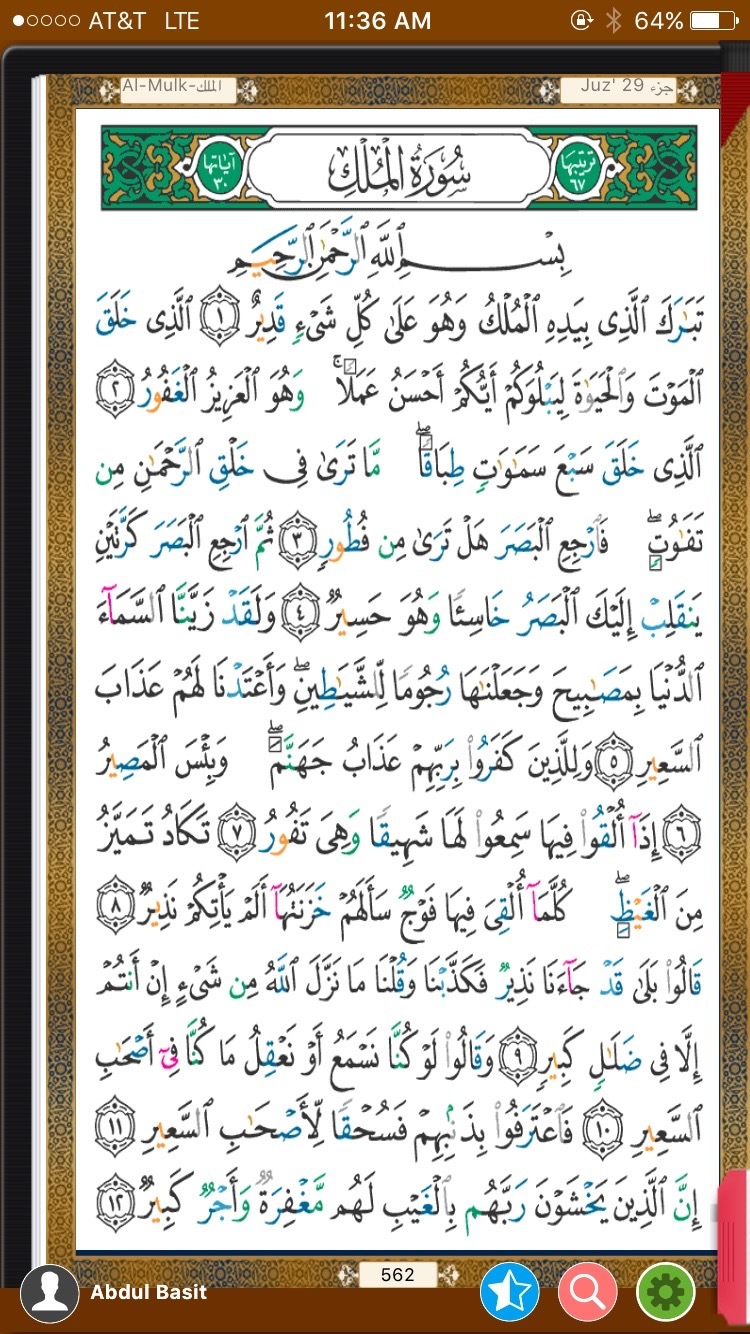 AT&T LTE 11:36 AM 64%
Al-Mulk-الملك Juz' 29 جزء
ترتيبها ٦٧ سُورَةُ الْمُلْكِ آياتها ٣٠
بِسْمِ ٱللَّهِ ٱلرَّحْمَٰنِ ٱلرَّحِيمِ
تَبَٰرَكَ ٱلَّذِى بِيَدِهِ ٱلْمُلْكُ وَهُوَ عَلَىٰ كُلِّ شَىْءٍ قَدِيرٌ ١ ٱلَّذِى خَلَقَ
ٱلْمَوْتَ وَٱلْحَيَوٰةَ لِيَبْلُوَكُمْ أَيُّكُمْ أَحْسَنُ عَمَلًا ۚ وَهُوَ ٱلْعَزِيزُ ٱلْغَفُورُ ٢
ٱلَّذِى خَلَقَ سَبْعَ سَمَٰوَٰتٍ طِبَاقًا ۖ مَّا تَرَىٰ فِى خَلْقِ ٱلرَّحْمَٰنِ مِن
تَفَٰوُتٍ ۖ فَٱرْجِعِ ٱلْبَصَرَ هَلْ تَرَىٰ مِن فُطُورٍ ٣ ثُمَّ ٱرْجِعِ ٱلْبَصَرَ كَرَّتَيْنِ
يَنقَلِبْ إِلَيْكَ ٱلْبَصَرُ خَاسِئًا وَهُوَ حَسِيرٌ ٤ وَلَقَدْ زَيَّنَّا ٱلسَّمَآءَ
ٱلدُّنْيَا بِمَصَٰبِيحَ وَجَعَلْنَٰهَا رُجُومًا لِّلشَّيَٰطِينِ ۖ وَأَعْتَدْنَا لَهُمْ عَذَابَ
ٱلسَّعِيرِ ٥ وَلِلَّذِينَ كَفَرُوا۟ بِرَبِّهِمْ عَذَابُ جَهَنَّمَ ۖ وَبِئْسَ ٱلْمَصِيرُ
٦ إِذَآ أُلْقُوا۟ فِيهَا سَمِعُوا۟ لَهَا شَهِيقًا وَهِىَ تَفُورُ ٧ تَكَادُ تَمَيَّزُ
مِنَ ٱلْغَيْظِ ۖ كُلَّمَآ أُلْقِىَ فِيهَا فَوْجٌ سَأَلَهُمْ خَزَنَتُهَآ أَلَمْ يَأْتِكُمْ نَذِيرٌ ٨
قَالُوا۟ بَلَىٰ قَدْ جَآءَنَا نَذِيرٌ فَكَذَّبْنَا وَقُلْنَا مَا نَزَّلَ ٱللَّهُ مِن شَىْءٍ إِنْ أَنتُمْ
إِلَّا فِى ضَلَٰلٍ كَبِيرٍ ٩ وَقَالُوا۟ لَوْ كُنَّا نَسْمَعُ أَوْ نَعْقِلُ مَا كُنَّا فِىٓ أَصْحَٰبِ
ٱلسَّعِيرِ ١٠ فَٱعْتَرَفُوا۟ بِذَنۢبِهِمْ فَسُحْقًا لِّأَصْحَٰبِ ٱلسَّعِيرِ ١١
إِنَّ ٱلَّذِينَ يَخْشَوْنَ رَبَّهُم بِٱلْغَيْبِ لَهُم مَّغْفِرَةٌ وَأَجْرٌ كَبِيرٌ ١٢
562
Abdul Basit